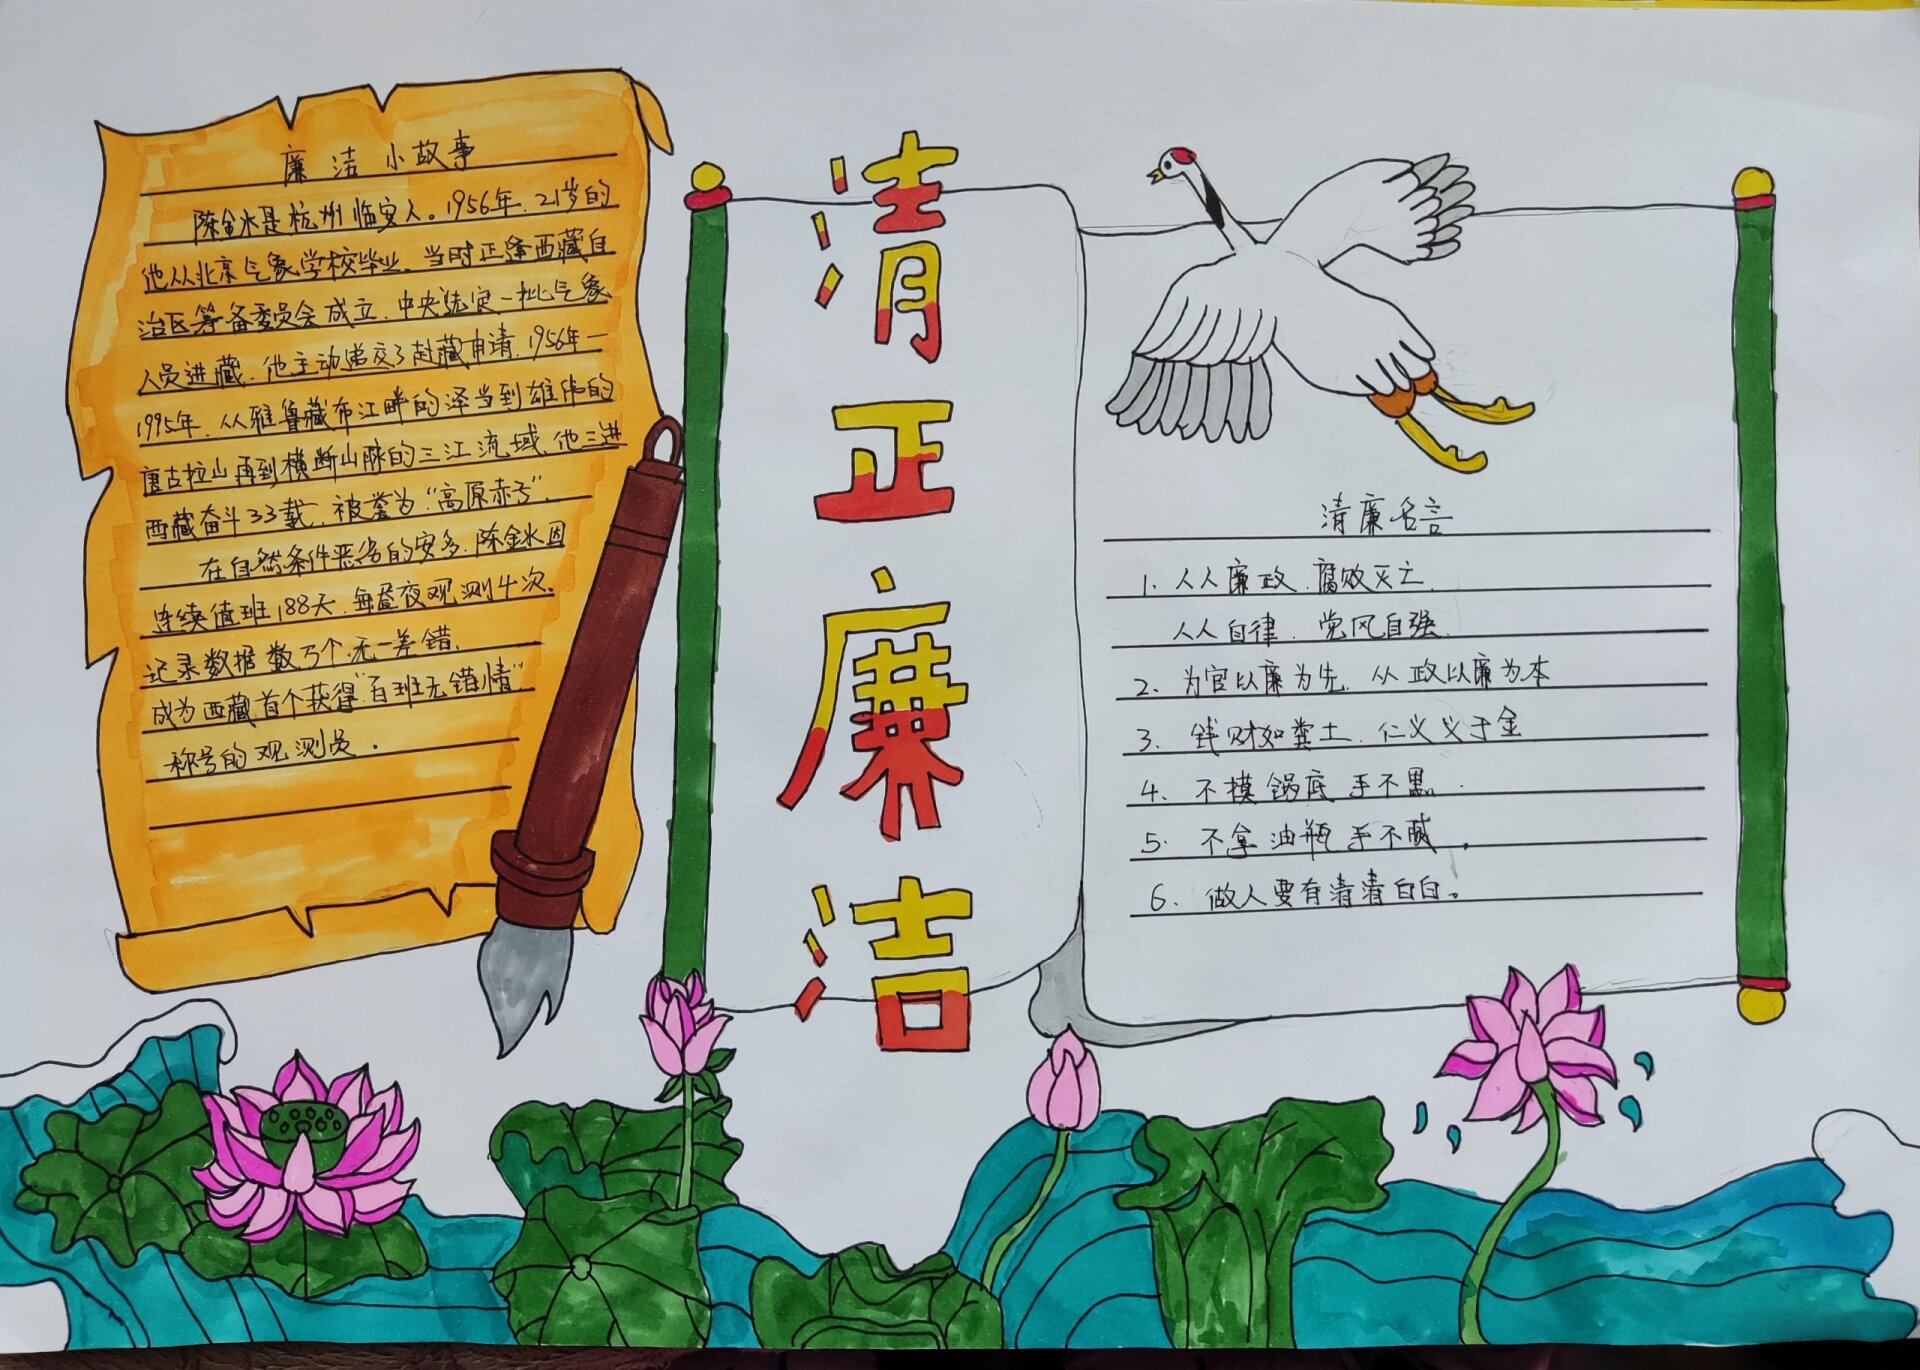 廉洁小故事
陈金水是杭州临安人。1956年.21岁的
他从北京气象学校毕业。当时正逢西藏自
治区筹备委员会成立.中央选定一批气象
人员进藏.他主动递交了赴藏申请.1956年—
1995年.从雅鲁藏布江畔的泽当到雄伟的
唐古拉山再到横断山脉的三江流域.他三进
西藏奋斗33载.被誉为“高原赤子”.
在自然条件恶劣的安多.陈金水因
连续值班188天.每昼夜观测4次.
记录数据数万个.无一差错.
成为西藏首个获得“百班无错情”
称号的观测员.
清正廉洁
清廉名言
1. 人人廉政.腐败灭亡.
人人自律.党风自强.
2. 为官以廉为先.从政以廉为本
3. 钱财如粪土.仁义义于金
4. 不摸锅底手不黑.
5. 不拿油瓶手不腻.
6. 做人要有清清白白。